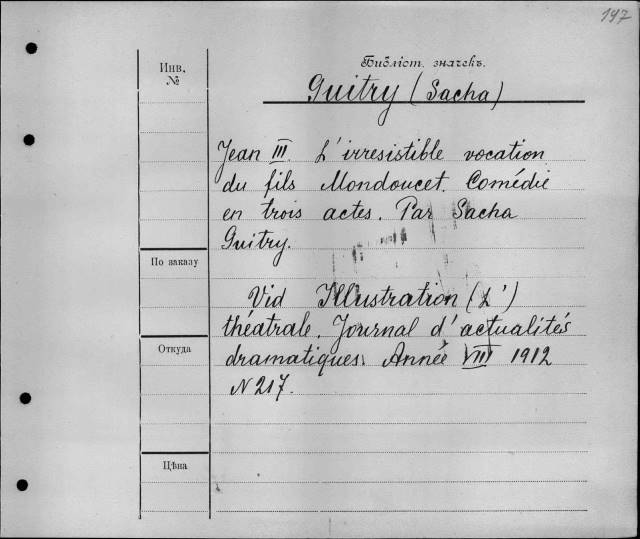 197
Инв.
№
Библіот. значекъ.
Guitry (Sacha)
Jean III. L'irresistible vocation
du fils Mondoucet. Comédie
en trois actes. Par Sacha
Guitry.
По заказу
Vid Illustration (L')
théatrale. Journal d'actualités
Откуда
dramatiques. Année VIII 1912
N 217.
Цѣна